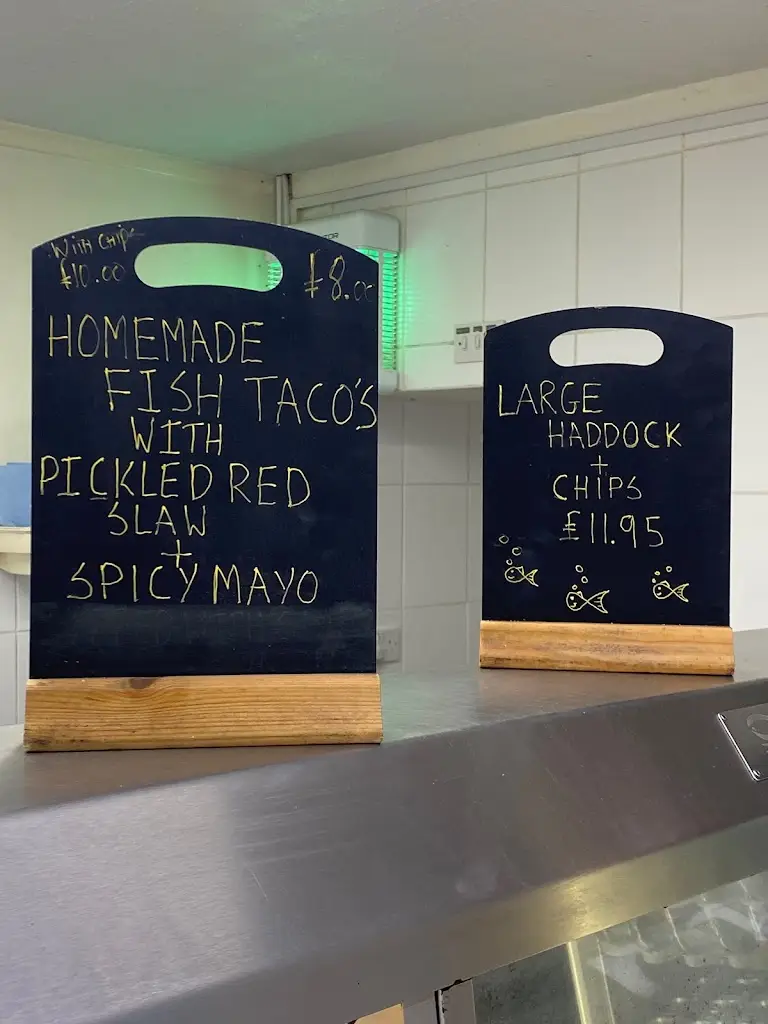 WITH CHIPS
£10.00
£8.00
HOMEMADE
FISH TACO'S
WITH
PICKLED RED
SLAW
+
SPICY MAYO
LARGE
HADDOCK
+
CHIPS
£11.95